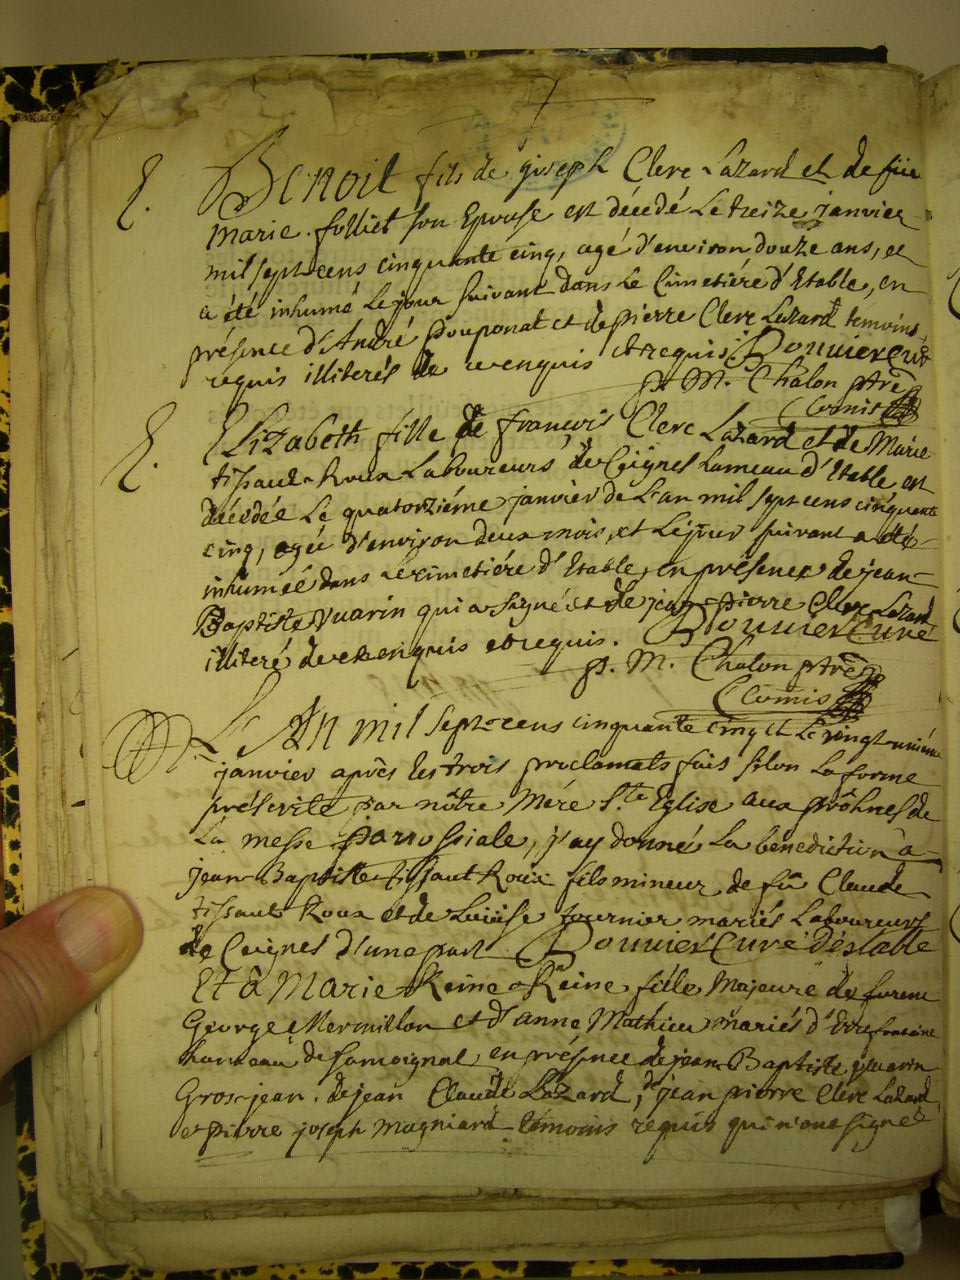 E. Benoit fils de joseph Clerc Lazard et de füe
marie folliet son Epouse est décédé Le treize janvier
mil sept cens cinquante cinq, agé d'environ douze ans, et
a été inhumé Le jour suivant dans Le Cimetiére d'Etable, en
présence d'André Pouponat et de pierre Clerc Lazard temoins
requis illiterés de ce enquis et requis. Bouvier Curé
p. M. Chalon ptre
Commis
E. Elizabeth fille de françois Clerc Lazard et de Marie
tissaut Roux Laboureurs de Ceignes hameau d'Etable est
décédée Le quatorziéme janvier de L'an mil sept cens cinquante
cinq, agée d'environ deux mois, et Le jour suivant a été
inhumée dans Le cimetiére d'Etable, en présence de jean
Baptiste Vuarin qui a signé et de jean pierre Clerc Lazard
illiteré de ce enquis et requis. Bouvier Curé
p. M. Chalon ptre
Commis
L'An mil Sept cens cinquante cinq et Le vingt uniéme
janvier aprés Les trois proclamats fais selon La forme
préscrite par nôtre Mére Ste Eglise aux prôhnes de
La messe parrossiale, j'ay donné La bénédiction à
jean Baptiste tissaut Roux fils mineur de fû Claude
tissaut Roux et de Loüise fournier mariés Laboureurs
de Ceignes d'une part Bouvier Curé D'éstable
Et à Marie Reine fille Majeure de
George Mermillon et d'anne Mathieu mariés
hameau de Samoignat en présence de jean Baptiste Vuarin
Gros jean, de jean Claude Lazard, de jean pierre Clerc Lazard,
et pierre joseph Magniard temoins requis qui n'ont signé